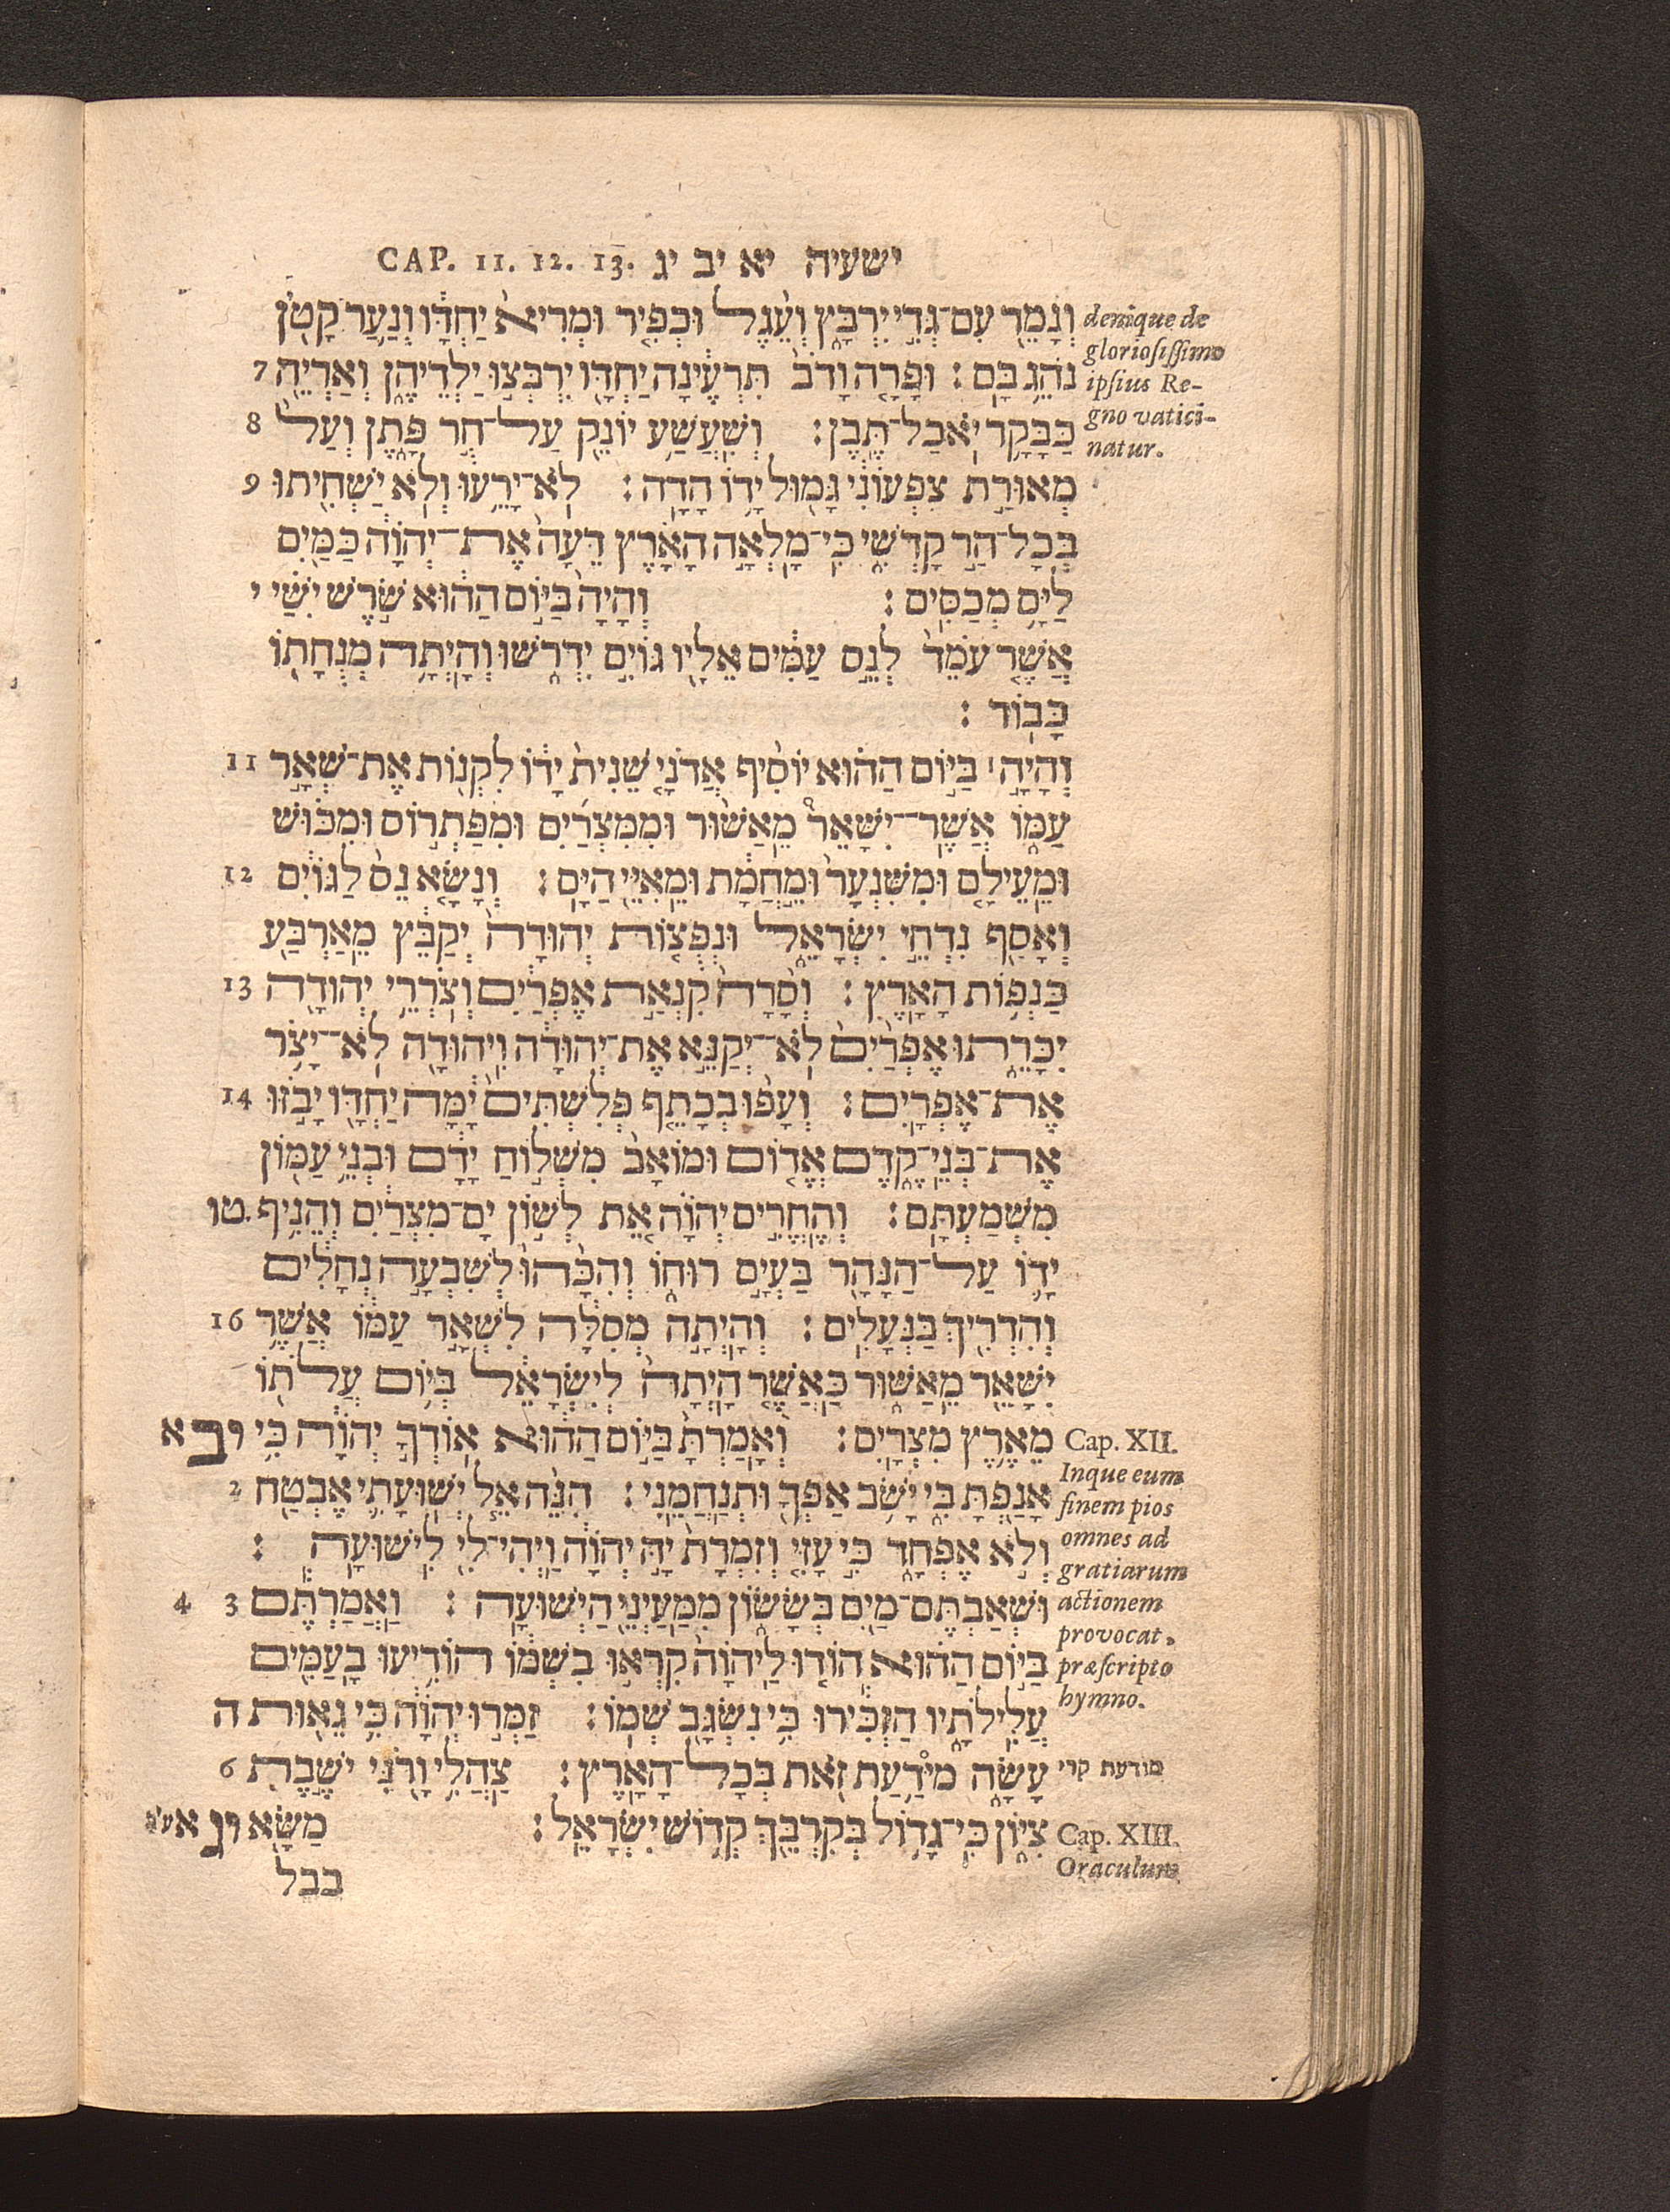 ישעיה יא יב יג CAP. 11. 12. 13.
וְנָמֵ֖ר עִם־גְּדִ֣י יִרְבָּ֑ץ וְעֵ֨גֶל וּכְפִ֤יר וּמְרִיא֙ יַחְדָּ֔ו וְנַ֥עַר קָטֹ֖ן
נֹהֵ֥ג בָּֽם׃ וּפָרָ֤ה וָדֹב֙ תִּרְעֶ֔ינָה יַחְדָּ֖ו יִרְבְּצ֣וּ יַלְדֵיהֶ֑ן וְאַרְיֵ֖ה 7
כַּבָּקָ֥ר יֹֽאכַל־תֶּֽבֶן׃ וְשִֽׁעֲשַׁ֥ע יוֹנֵ֖ק עַל־חֻ֣ר פָּ֑תֶן וְעַל֙ 8
מְאוּרַ֣ת צִפְעוֹנִ֔י גָּמ֖וּל יָד֥וֹ הָדָֽה׃ לֹֽא־יָרֵ֥עוּ וְלֹֽא יַשְׁחִ֖יתוּ 9
בְּכָל־הַ֣ר קָדְשִׁ֑י כִּֽי־מָלְאָ֣ה הָאָ֗רֶץ דֵּעָה֙ אֶת־יְהוָֹ֔ה כַּמַּ֖יִם
לַיָּ֥ם מְכַסִּֽים׃ וְהָיָה֙ בַּיּ֣וֹם הַה֔וּא שֹׁ֣רֶשׁ יִשַׁ֗י י
אֲשֶׁ֤ר עֹמֵד֙ לְנֵ֣ס עַמִּ֔ים אֵלָ֖יו גּוֹיִ֣ם יִדְרֹ֑שׁוּ וְהָיְתָ֥ה מְנֻחָת֖וֹ
כָּבֽוֹד׃
וְהָיָ֣ה ׀ בַּיּ֣וֹם הַה֗וּא יוֹסִ֨יף אֲדֹנָ֤י שֵׁנִית֙ יָד֔וֹ לִקְנ֖וֹת אֶת־שְׁאָ֣ר 11
עַמּ֑וֹ אֲשֶׁר־יִשָּׁאֵר֩ מֵֽאַשּׁ֨וּר וּמִמִּצְרַ֜יִם וּמִפַּתְר֣וֹס וּמִכּ֗וּשׁ
וּמֵֽעֵילָ֤ם וּמִשִּׁנְעָר֙ וּמֵ֣חֲמָ֔ת וּמֵֽאִיֵּ֖י הַיָּֽם׃ וְנָשָׂ֥א נֵס֙ לַגּוֹיִ֔ם 12
וְאָסַ֖ף נִדְחֵ֣י יִשְׂרָאֵ֑ל וּנְפֻצ֤וֹת יְהוּדָה֙ יְקַבֵּ֔ץ מֵֽאַרְבַּ֖ע
כַּנְפ֥וֹת הָאָֽרֶץ׃ וְסָ֨רָה֙ קִנְאַ֣ת אֶפְרַ֔יִם וְצֹֽרְרֵ֥י יְהוּדָ֖ה 13
יִכָּרֵ֑תוּ אֶפְרַ֨יִם֙ לֹֽא־יְקַנֵּ֣א אֶת־יְהוּדָ֔ה וִֽיהוּדָ֖ה לֹֽא־יָצֹ֥ר
אֶת־אֶפְרָֽיִם׃ וְעָפ֨וּ בְכָתֵ֤ף פְּלִשְׁתִּים֙ יָ֔מָּה יַחְדָּ֖ו יָבֹ֣זּוּ 14
אֶת־בְּנֵי־קֶ֑דֶם אֱד֤וֹם וּמוֹאָב֙ מִשְׁל֣וֹחַ יָדָ֔ם וּבְנֵ֥י עַמּ֖וֹן
מִשְׁמַעְתָּֽם׃ וְהֶֽחֱרִ֣ים יְהוָֹ֗ה אֵ֚ת לְשׁ֣וֹן יָם־מִצְרַ֔יִם וְהֵנִ֥יף טו.
יָד֛וֹ עַל־הַנָּהָ֖ר בַּעְיָ֣ם רוּח֑וֹ וְהִכָּ֨הוּ֙ לְשִׁבְעָ֣ה נְחָלִ֔ים
וְהִדְרִ֖יךְ בַּנְּעָלִֽים׃ וְהָֽיְתָ֣ה מְסִלָּ֔ה לִשְׁאָ֣ר עַמּ֔וֹ אֲשֶׁ֥ר 16
יִשָּׁאֵ֖ר מֵֽאַשּׁ֑וּר כַּֽאֲשֶׁ֤ר הָֽיְתָה֙ לְיִשְׂרָאֵ֔ל בְּי֥וֹם עֲלֹת֖וֹ
מֵאֶ֥רֶץ מִצְרָֽיִם׃ וְאָֽמַרְתָּ֙ בַּיּ֣וֹם הַה֔וּא אֽוֹדְךָ֣ יְהוָֹ֔ה כִּ֥י יב א
אָנַ֖פְתָּ בִּ֑י יָשֹׁ֥ב אַפְּךָ֖ וּֽתְנַחֲמֵֽנִי׃ הִנֵּ֨ה אֵ֧ל יְשֽׁוּעָתִ֛י אֶבְטַ֖ח 2
וְלֹ֣א אֶפְחָ֑ד כִּֽי עָזִּ֤י וְזִמְרָת֙ יָ֣הּ יְהוָֹ֔ה וַֽיְהִי־לִ֖י לִֽישׁוּעָֽה׃
וּשְׁאַבְתֶּם־מַ֖יִם בְּשָׂשׂ֑וֹן מִמַּעַיְנֵ֖י הַיְשׁוּעָֽה׃ וַאֲמַרְתֶּ֞ם 3 4
בַּיּ֣וֹם הַה֗וּא הוֹד֤וּ לַֽיהוָֹה֙ קִרְא֣וּ בִשְׁמ֔וֹ הוֹדִ֥יעוּ בָֽעַמִּ֖ים
עֲלִֽילֹתָ֑יו הַזְכִּ֕ירוּ כִּ֥י נִשְׂגָּ֖ב שְׁמֽוֹ׃ זַמְּר֣וּ יְהוָֹ֔ה כִּ֥י גֵא֖וּת ה
עָשָׂ֑ה מידַ֥עַת זֹ֖את בְּכָל־הָאָֽרֶץ׃ צַֽהֲלִ֥י וָרֹ֖נִּי יֹשֶׁ֣בֶת 6
צִיּ֑וֹן כִּֽי־גָד֥וֹל בְּקִרְבֵּ֖ךְ קְד֥וֹשׁ יִשְׂרָאֵֽל׃ מַשָּׂ֖א יג א
בבל
denique de
gloriosissimo
ipsius Re-
gno vatici-
natur.
Cap. XII.
Inque eum
finem pios
omnes ad
gratiarum
actionem
provocat,
præscripto
hymno.
מודעת קרי
Cap. XIII.
Oraculum